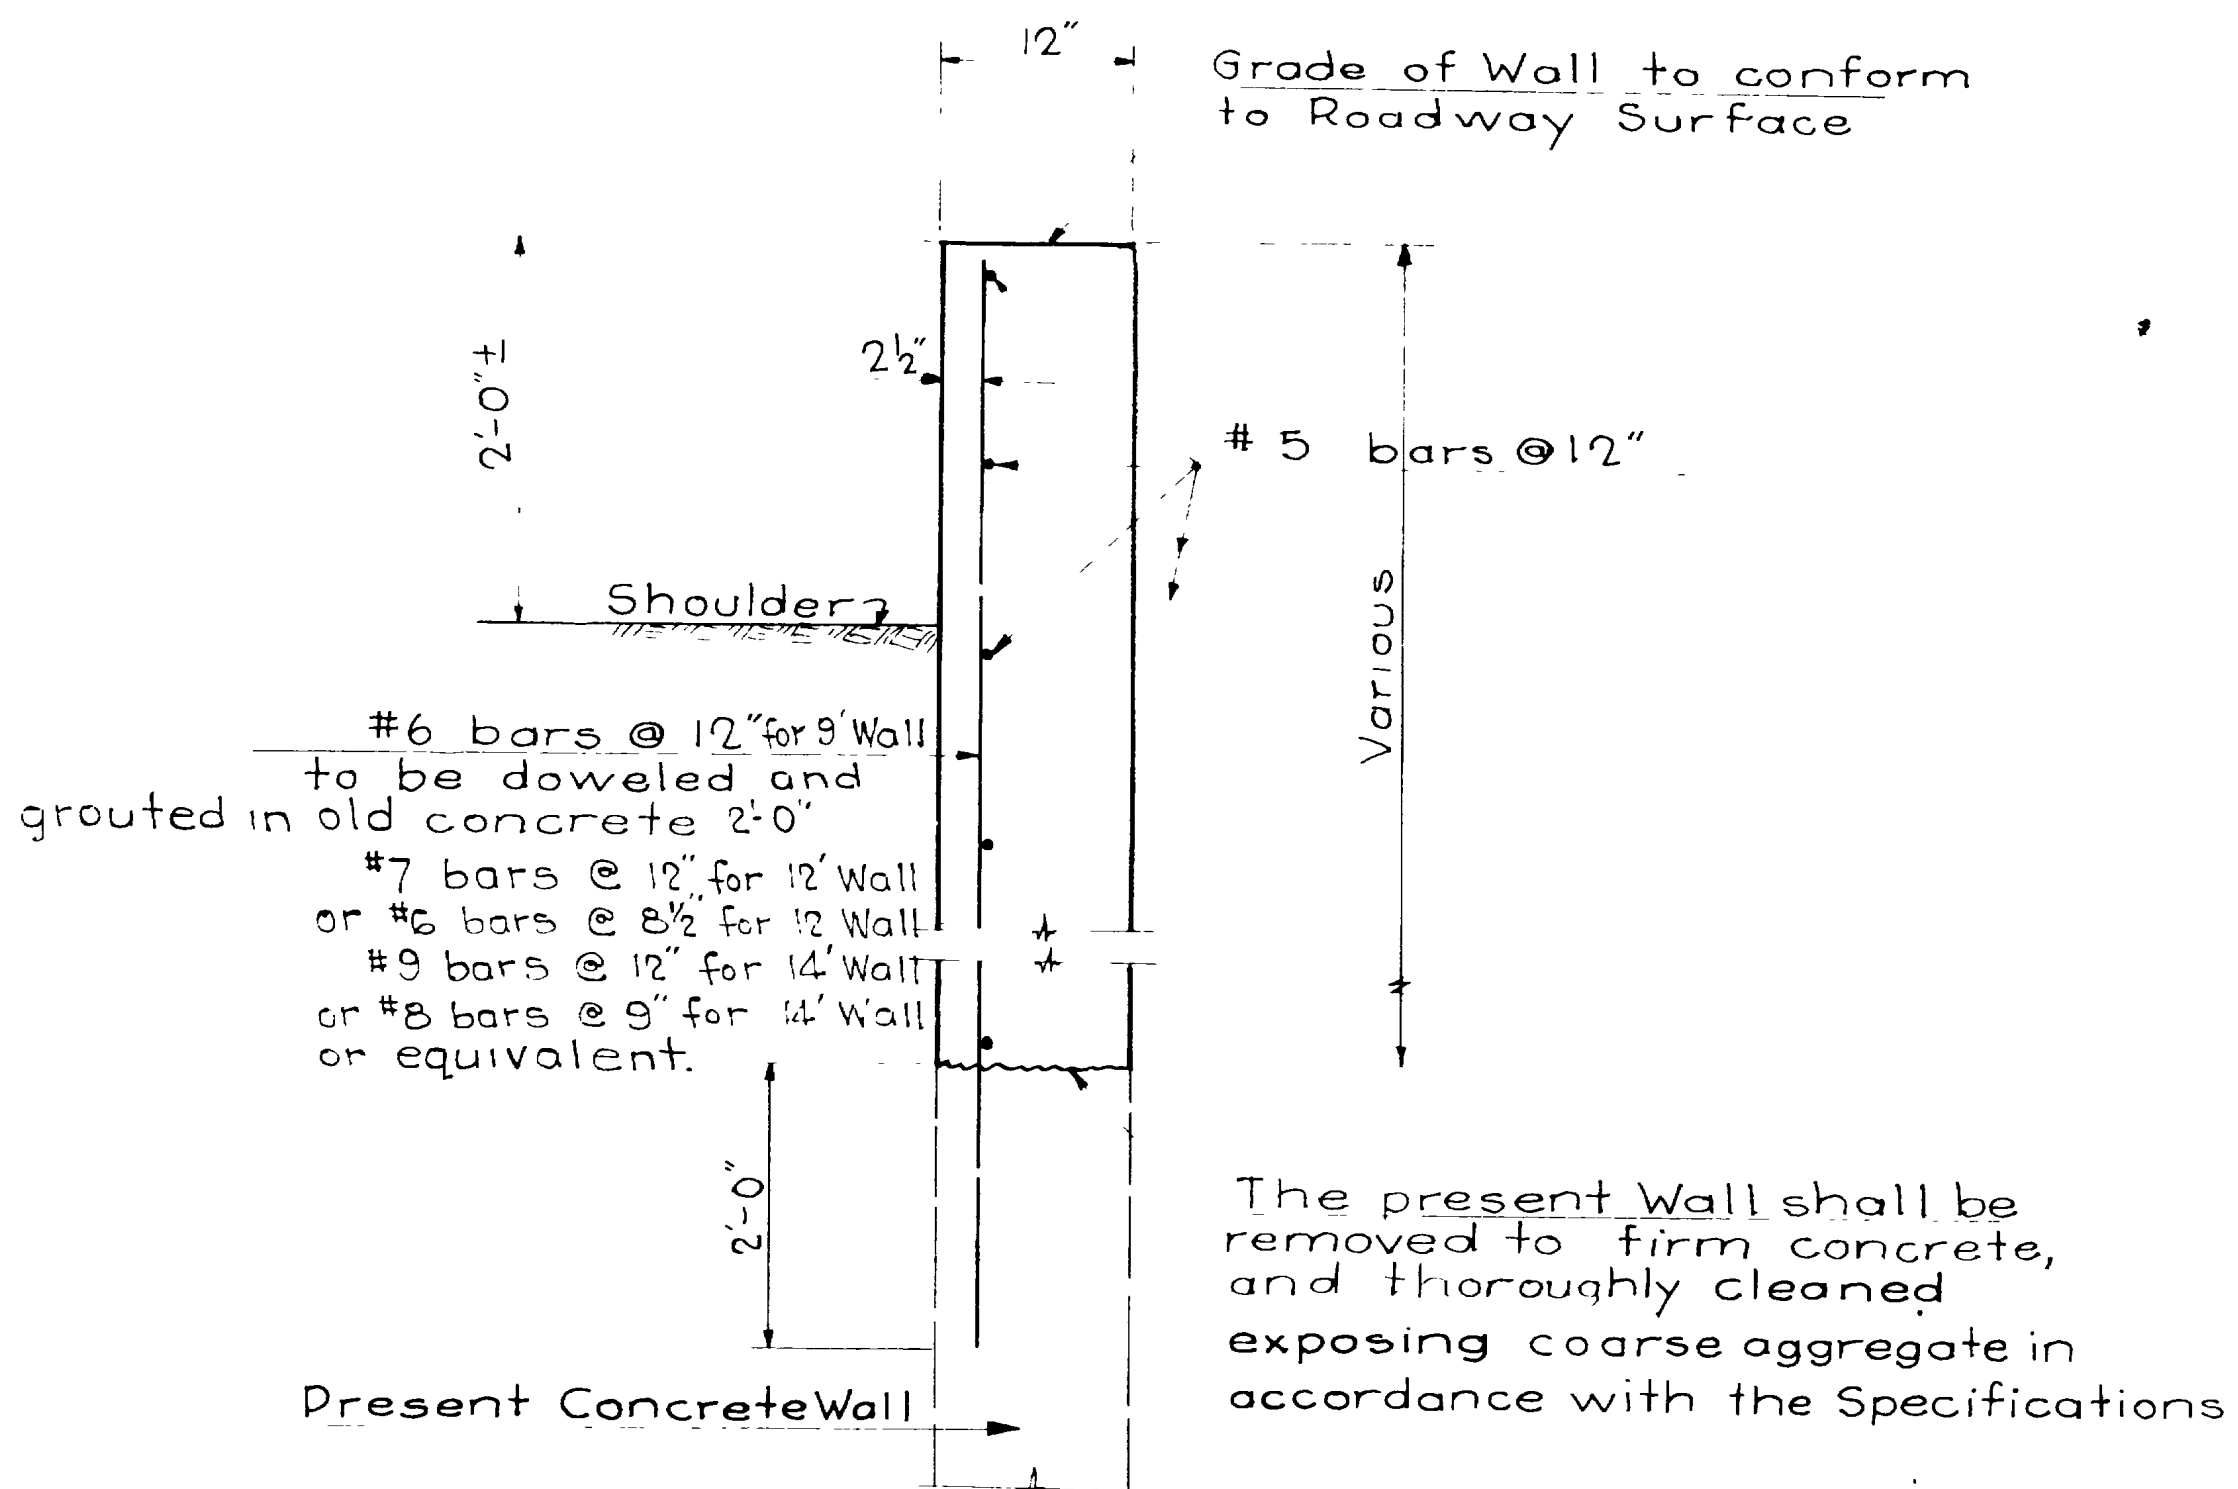 12"
Grade of Wall to conform
to Roadway Surface
2'-0"±
2½"
# 5 bars @ 12"
Shoulder
Various
#6 bars @ 12" for 9' Wall
to be doweled and
grouted in old concrete 2'-0"
#7 bars @ 12" for 12' Wall
or #6 bars @ 8½" for 12 Wall
#9 bars @ 12" for 14' Wall
or #8 bars @ 9" for 14' Wall
or equivalent.
2'-0"
The present Wall shall be
removed to firm concrete,
and thoroughly cleaned
exposing coarse aggregate in
accordance with the Specifications
Present Concrete Wall